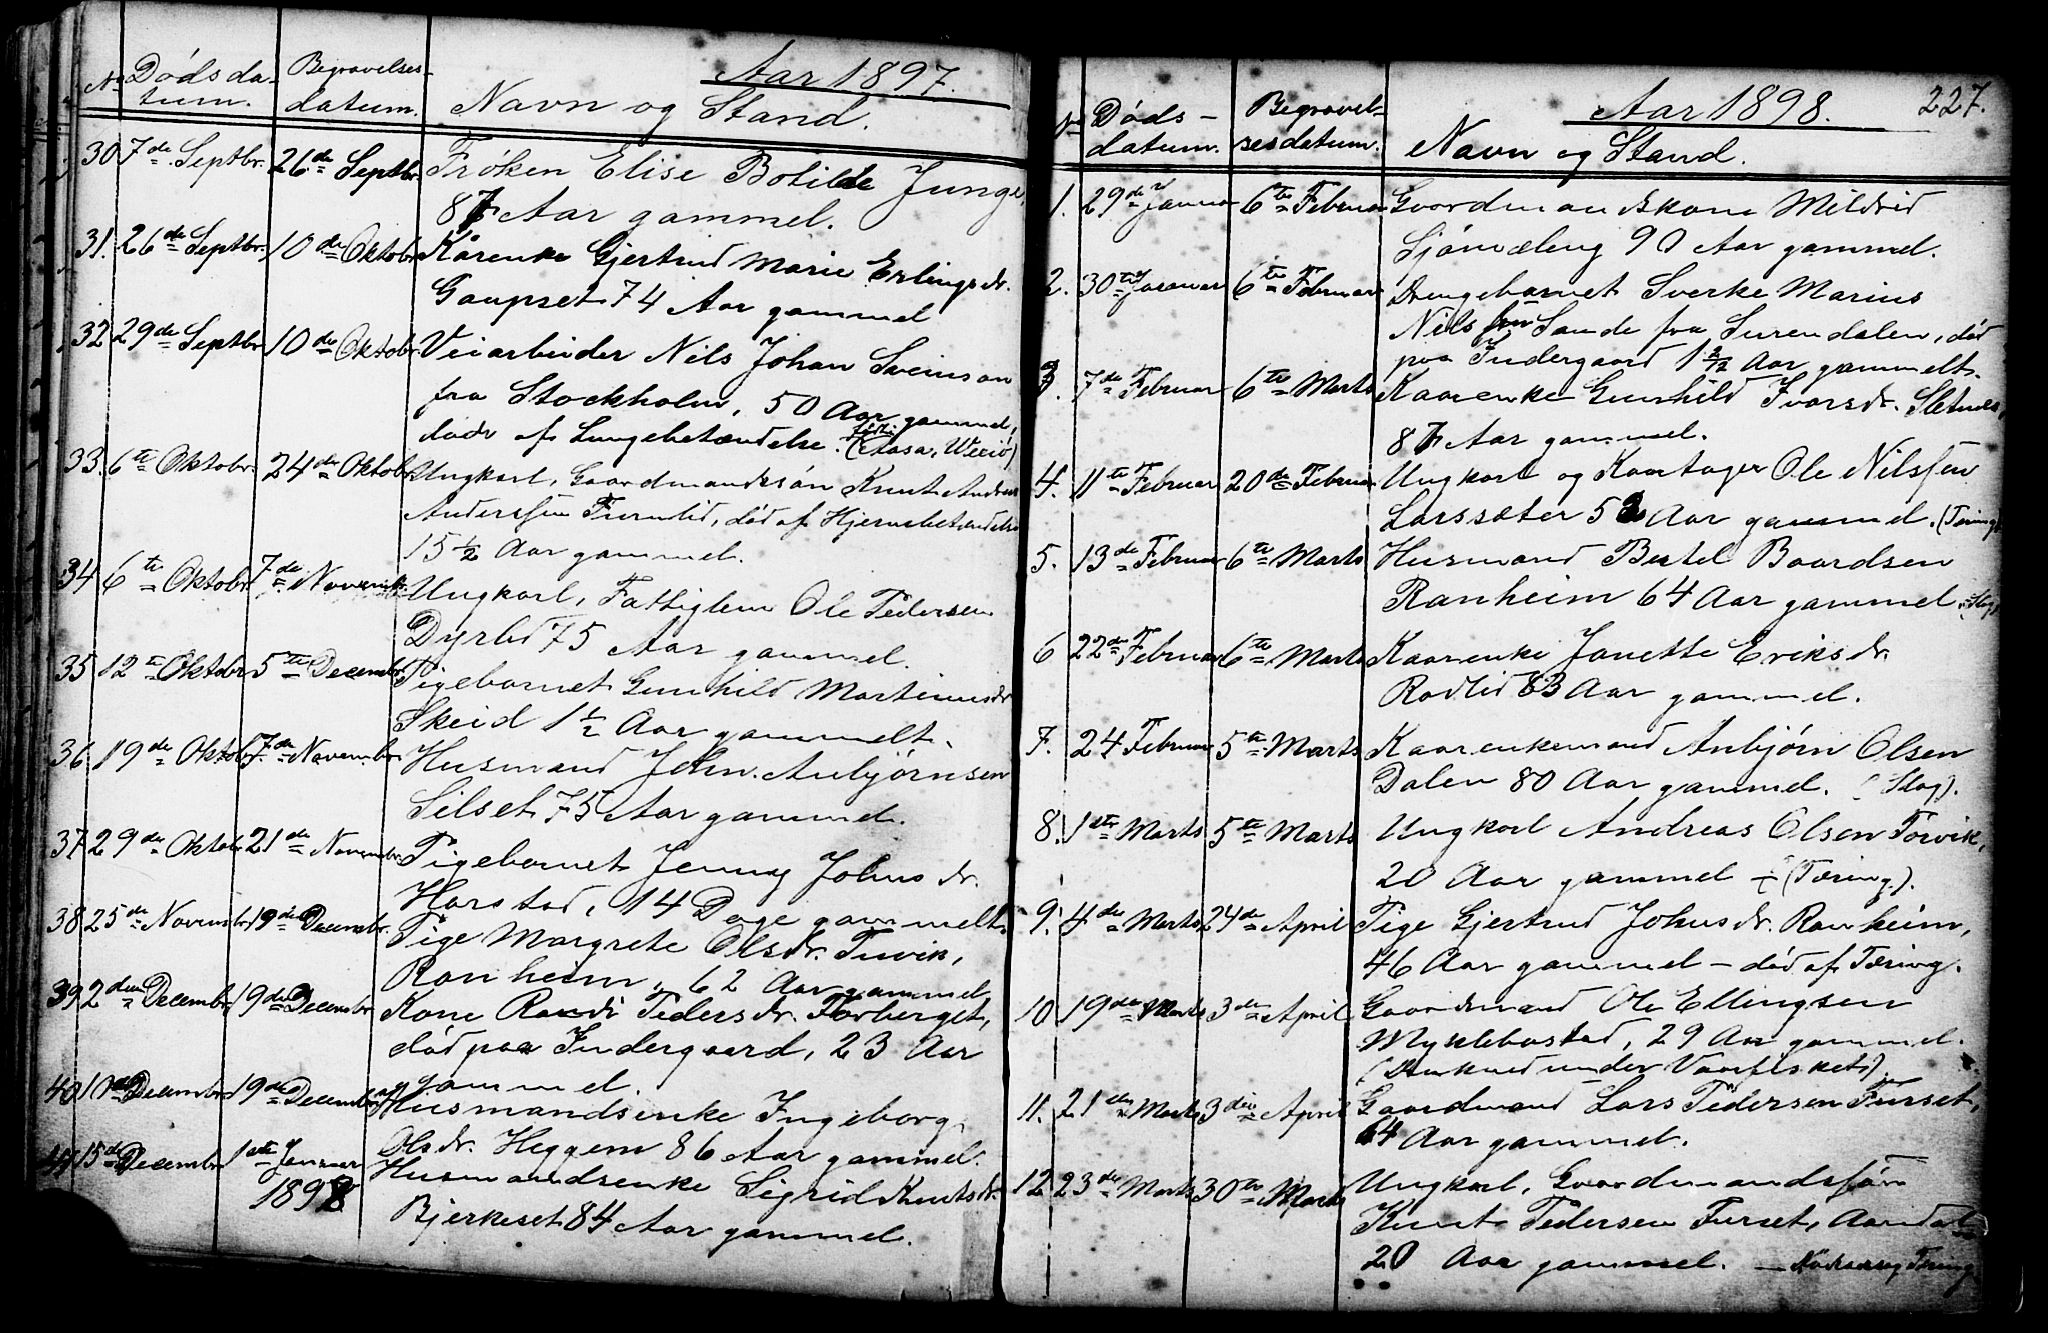 Aar 1897.
No Dødsda-
tum.
Begravelses-
datum.
Navn og Stand.
30 7de Septbr. 26de Septbr. Frøken Elise Botilde Junge,
87 Aar gammel.
31. 26de Septbr. 10de Oktobr. Kårenke Gjertrud Marie Erlingsdr.
Gaupset 74 Aar gammel
32 29de Septbr. 10de Oktobr. Veiarbeider Nils Johan Sveinson
fra Stockholm, 50 Aar gammel,
døde af Lungebetændelse.
33. 6te Oktobr. 24de Oktobr. Ungkarl, Gaardmandssøn Knut Andreas
Anderssen Furulid, død af Hjernebetændelse
15 1/2 Aar gammel.
34 6te Oktobr. 7de Novembr. Ungkarl, Fattiglem Ole Pedersen
Dyrlid 75 Aar gammel.
35 12te Oktobr 5te Decembr. Pigebarnet Gunhild Martinusdr
Skeid 1 1/2 Aar gammelt.
36 19de Oktobr. 7de Novembr. Husmand John Anbjørnsen
Silset 75 Aar gammel.
37 29de Oktobr 21de Novembr. Pigebarnet Jenny Johnsdr.
Harstad, 14 Dage gammelt.
38 25de Novembr. 19de Decembr. Pige Margrete Olsdr. Turvik,
Ranheim, 62 Aar gammel
39 2den Decembr. 19de Decembr Kone Randi Pedersdr. Farberget,
død paa Indergaard, 23 Aar
gammel.
40 10de Decembr. 19de Decembr Husmandsenke Ingeborg
Olsdr. Heggem 86 Aar gammel.
41 15de Decembr. 1ste Januar Husmandsenke Sigrid Knutsdr.
1898 Bjerkeset 84 Aar gammel.
227.
Aar 1898.
No Døds-
datum.
Begravel-
sesdatum.
Navn og Stand.
1. 29de Januar 6te Februar Gaardmandskone Mildrid
Sjømæling 90 Aar gammel.
2. 30te Januar 6te Februar Drengebarnet Sverke Marius
Nils Sande fra Surendalen, død
paa Indergaard 1 2/12 Aar gammelt.
3. 7de Februar 6te Marts Kaarenke Gunhild Ivarsdr. Sletnes,
87 Aar gammel.
4. 11te Februar 20de Februar Ungkarl og Kaartager Ole Nilssen
Larssæter 52 Aar gammel. (Tæring)
5. 13de Februar 6te Marts Husmand Bertel Baardsen
Ranheim 64 Aar gammel. (Slag)
6 22de Februar 6te Marts Kaarenke Janette Eriksdr.
Rødlid 83 Aar gammel.
7. 24 Februar 5te Marts Kaarenkemand Anbjørn Olsen
Dalen 80 Aar gammel. (Slag).
8. 1ste Marts 5te Marts Ungkarl Andreas Olsen Torvik,
20 Aar gammel - (Tæring).
9. 4de Marts 24de April Pige Gjertrud Johnsdr. Ranheim,
46 Aar gammel - død af Tæring.
10 19de Marts 3de April Gaardmand Ole Ellingsen
Myklebostad, 29 Aar gammel.
(Druknet under Vaarfisket)
11. 21de Marts 3die April Gaardmand Lars Pedersen Furset,
64 Aar gammel.
12. 23de Marts 30te Marts Ungkarl, Gaardmandssøn
Knut Pedersen Furset, Aandal
20 Aar gammel. - Tæring